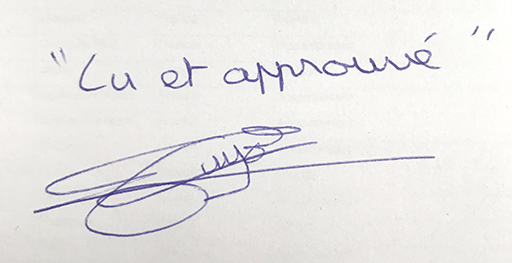 "Lu et approuvé"